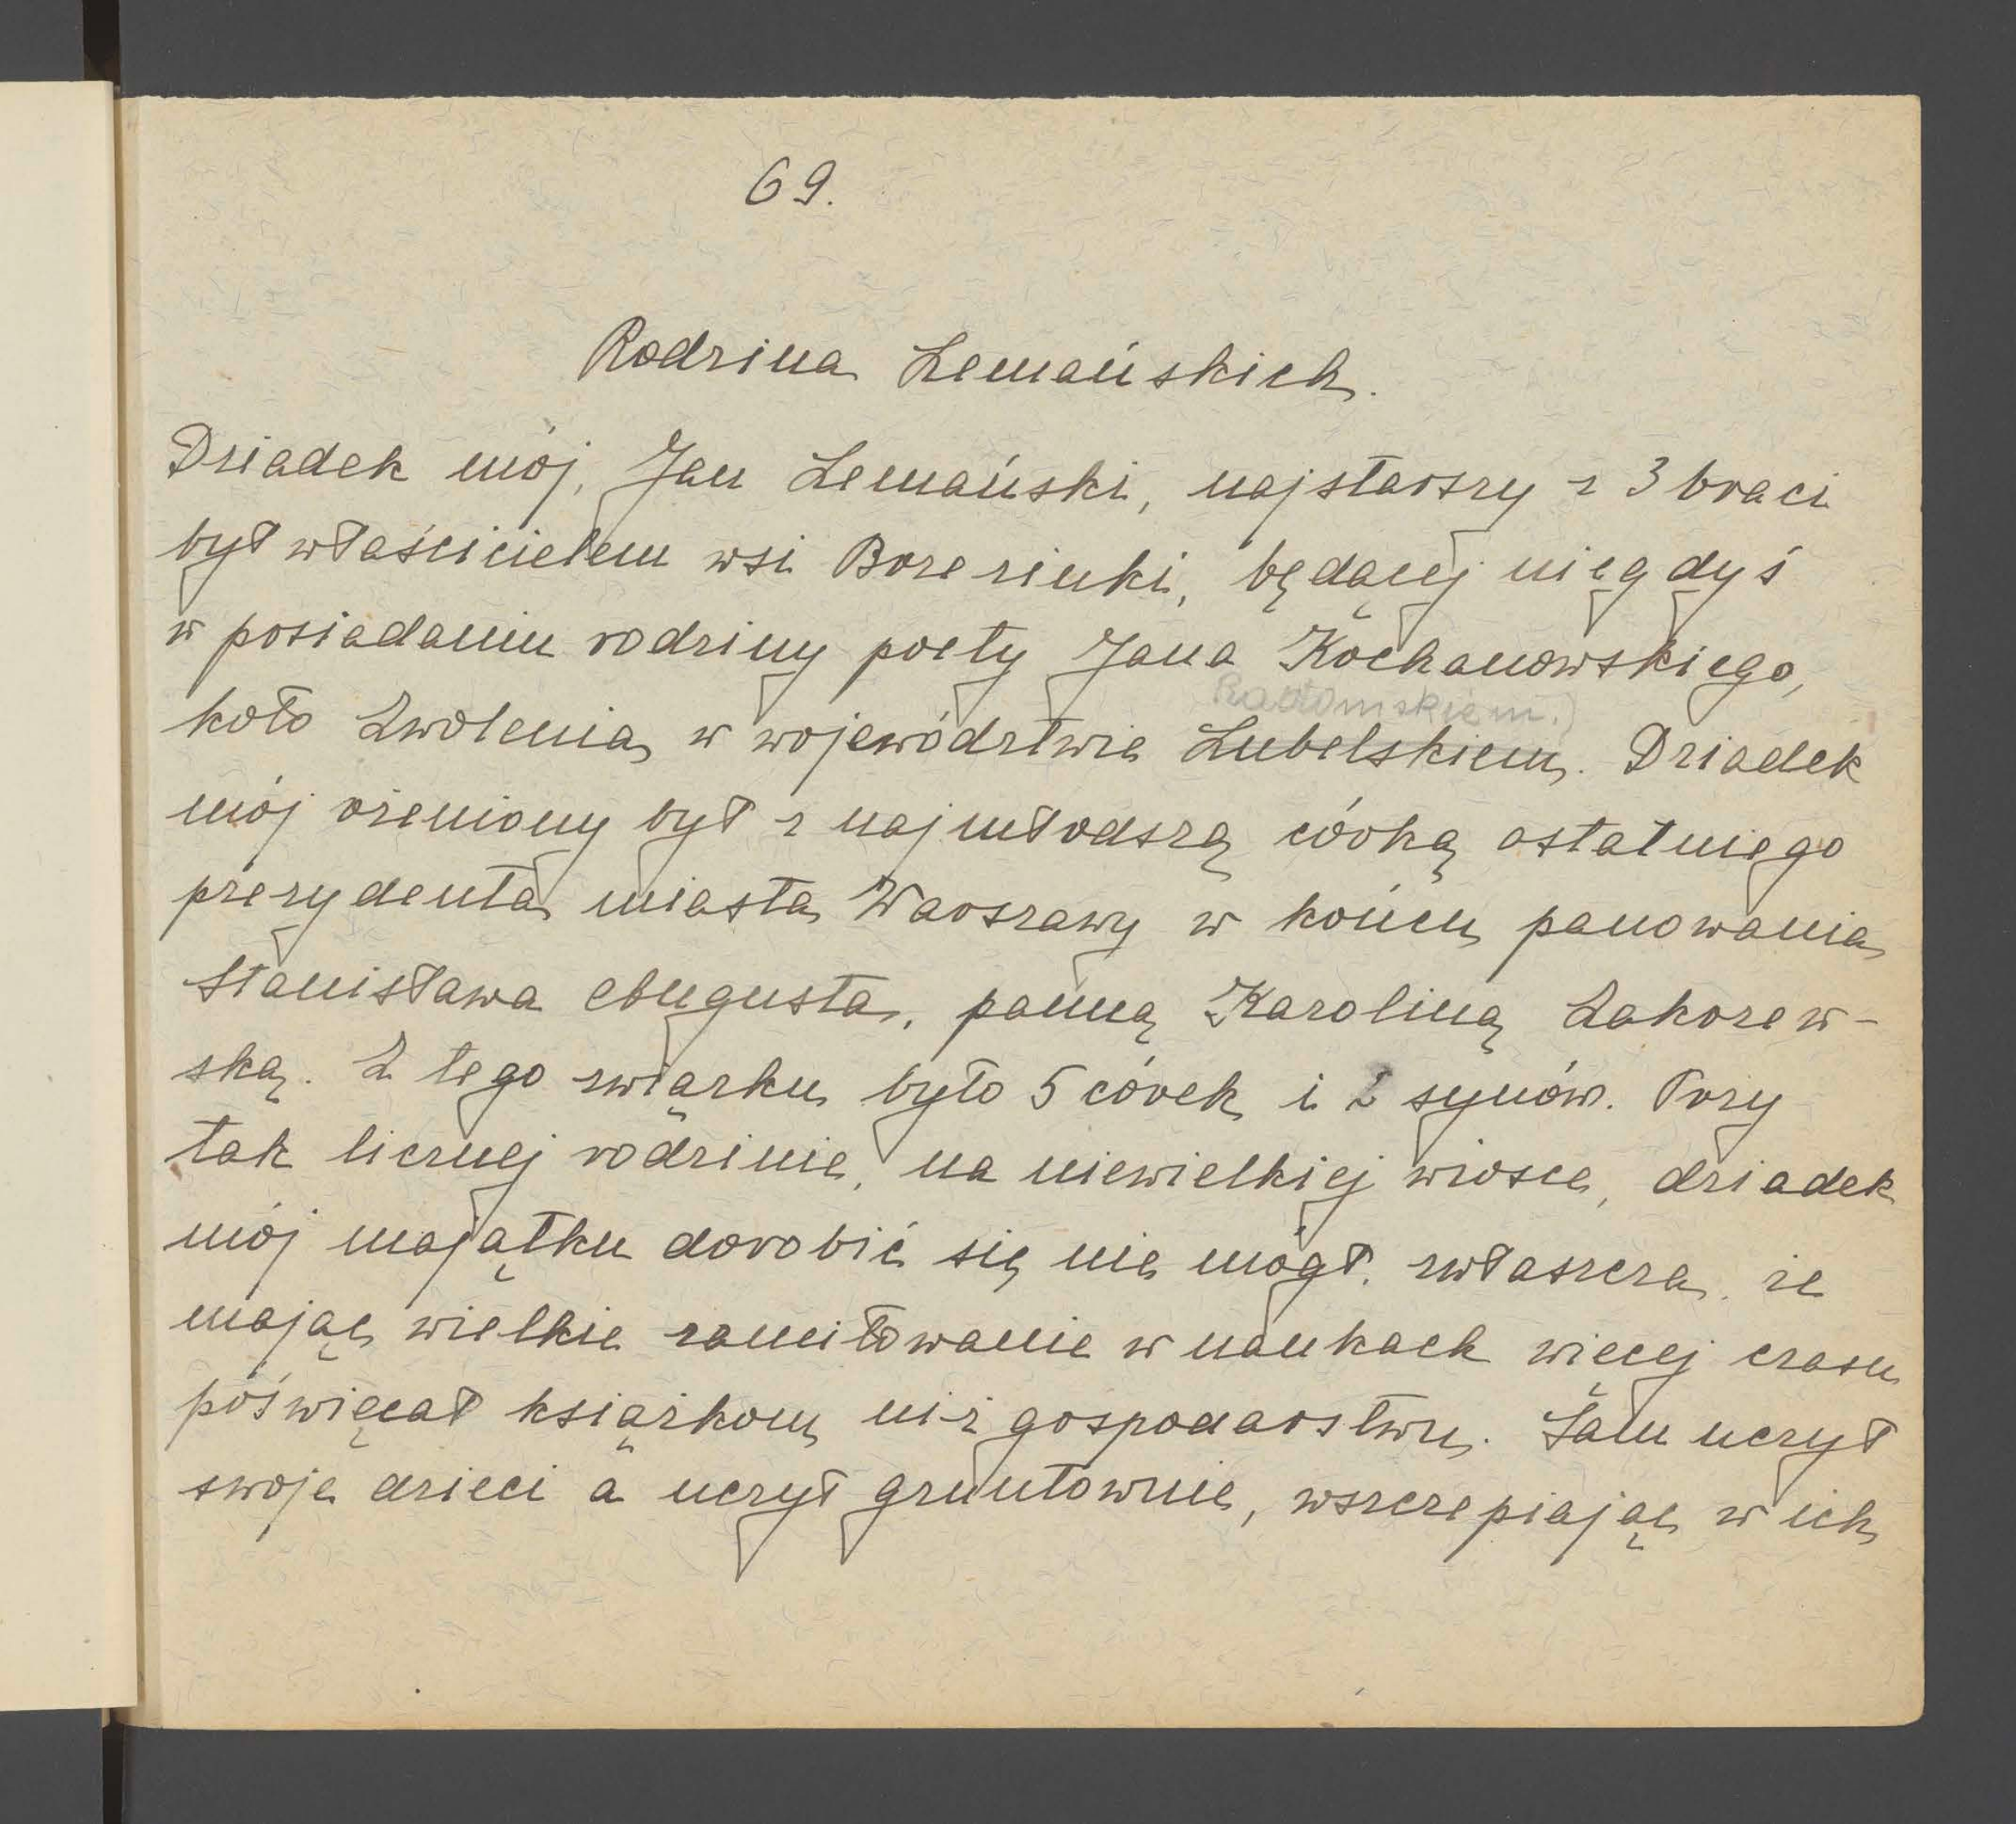 69.
Rodzina Lemańskich.
Dziadek mój, Jan Lemański, najstarszy z 3 braci
był właścicielem wsi Borzezinki, będącej niegdyś
w posiadaniu rodziny poety Jana Kochanowskiego,
Radomskiem.)
koło Zwolenia, w województwie Lubelskiem. Dziadek
mój ożeniony był z najmłodszą córką ostatniego
prezydenta miasta Warszawy w końcu panowania
Stanisława Augusta, panną Karoliną Zakrzew-
ską. Z tego związku było 5 córek i 2 synów. Przy
tak licznej rodzinie, na niewielkiej wiosce, dziadek
mój majątku dorobić się nie mógł, zwłaszcza, że
mając wielkie zamiłowanie w naukach więcej czasu
poświęcał książkom niż gospodarstwu. Sam uczył
swoje dzieci a uczył gruntownie, wszczepiając w ich